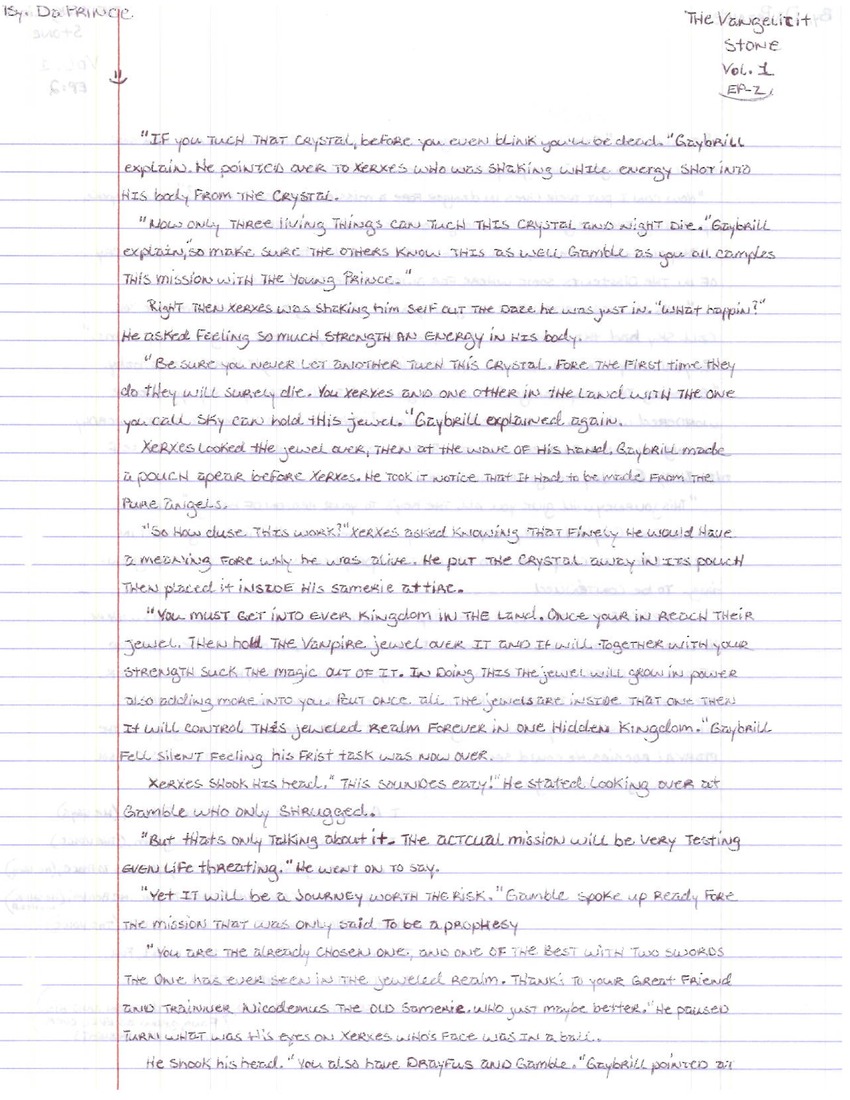 By. Da PRINCE
THE Vangelitit
STONE
Vol. 1
EP-2
"IF you TUCH THAT CRYSTAL, before you even blink you'll be dead." Gaybrill
explain. He pointed over to Xerxes who was shaking while energy shot into
His body from the crystal.
"Now only three living things can tuch this crystal and night die." Gaybrill
explain, "so make sure the others know this as well Gamble as you all camples
this mission with the Young Prince."
Right then Xerxes was shaking him self out the daze he was just in. "What happin?"
He asked feeling so much strength an energy in his body.
"Be sure you never let another tuch this crystal. Fore the first time they
do they will surely die. You Xerxes and one other in the land with the one
you call Sky can hold this jewel." Gaybrill explained again.
Xerxes looked the jewel over, then at the wave of his hand. Gaybrill made
a pouch apear before Xerxes. He took it notice that it had to be made from the
pure angels.
"So how duse this work?" Xerxes asked knowing that finely he would have
a meanving fore why he was alive. He put the crystal away in its pouch
then placed it inside his samerie attire.
"You must get into ever kingdom in the land. Once your in reach their
jewel. Then hold the Vanpire jewel over it and it will together with your
strength suck the magic out of it. In doing this the jewel will grow in power
also adding more into you. But once all the jewels are inside that one then
it will control this jeweled realm forever in one hidden kingdom." Gaybrill
fell silent feeling his frist task was now over.
Xerxes shook his head. "This soundes eazy!" He stated looking over at
Gamble who only shrugged.
"But thats only talking about it. The actcual mission will be very testing
even life threating." He went on to say.
"Yet it will be a journey worth the risk." Gamble spoke up ready fore
the mission that was only said to be a prophesy
"You are the already chosen one, and one of the best with two swords
the one has ever seen in the jeweled realm. Thanks to your great friend
and trainner Nicodemus the old samerie. Who just maybe better." He paused
turn what was his eyes on Xerxes who's face was in a ball.
He shook his head. "You also have Drayfus and Gamble." Gaybrill pointed at